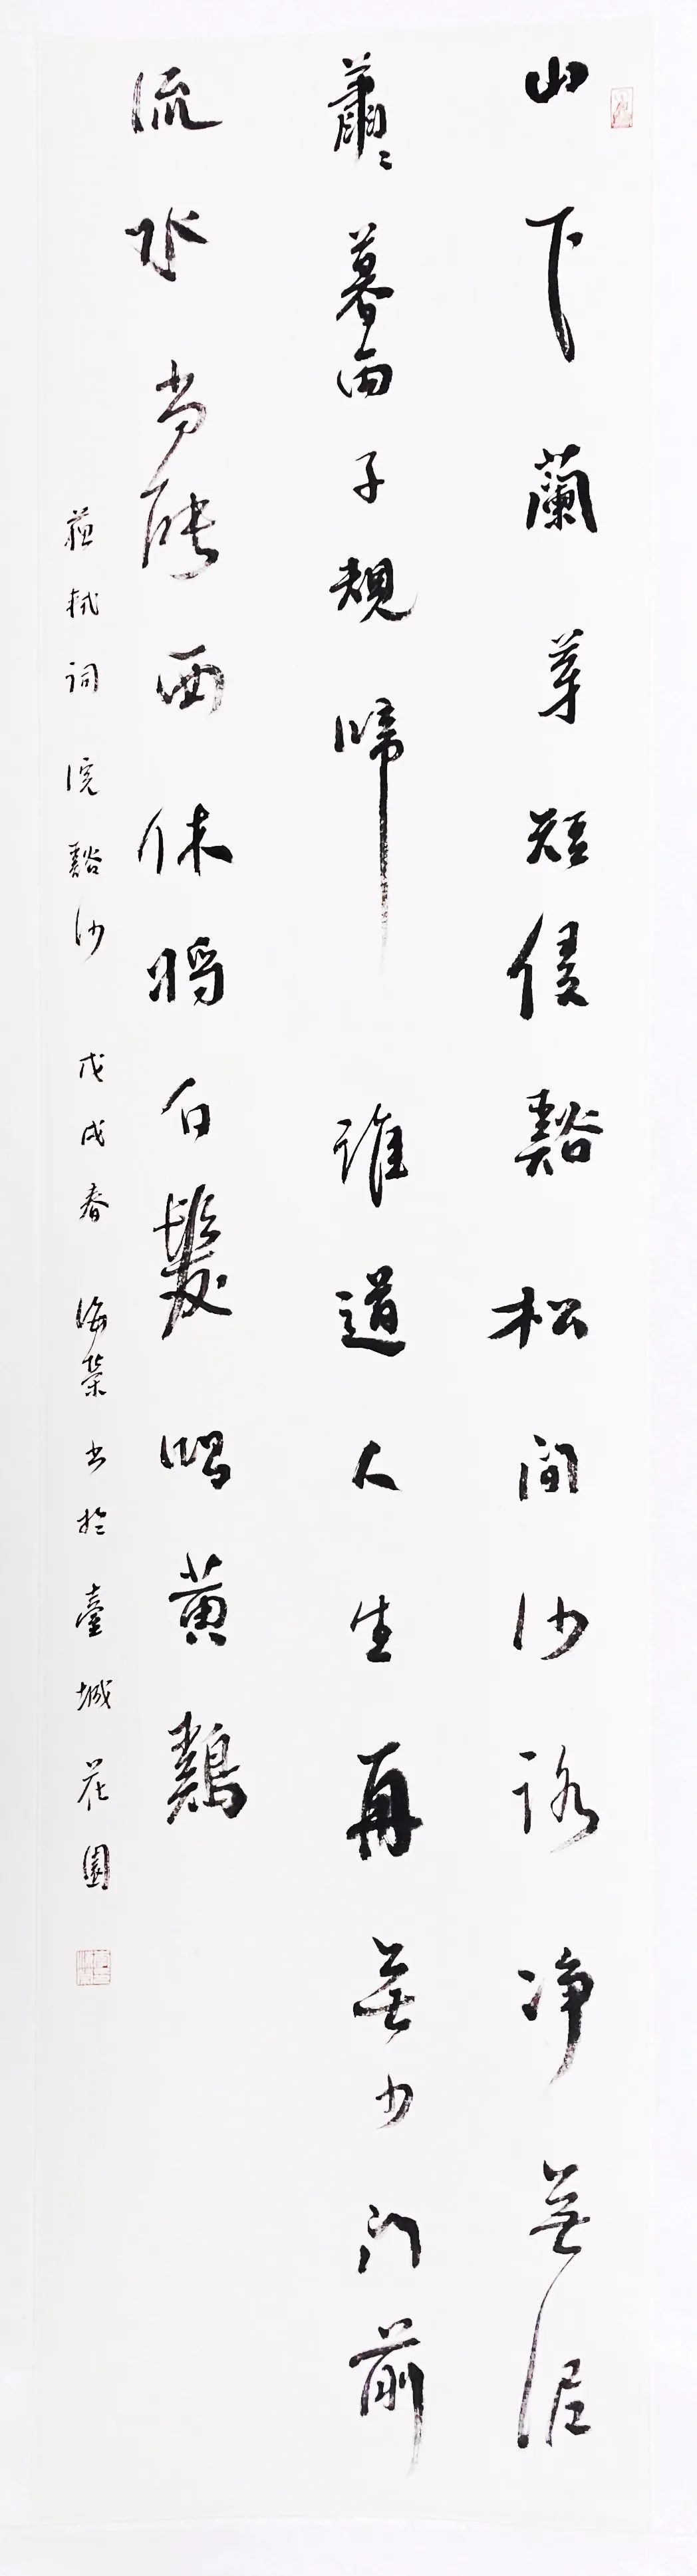 山下蘭芽短侵谿松間沙路净無泥
蕭〻暮雨子規啼 誰道人生再無少門前
流水尚能西休將白髮唱黄鷄
蘇軾詞 浣谿沙 戊戌春 海榮书於臺城花園